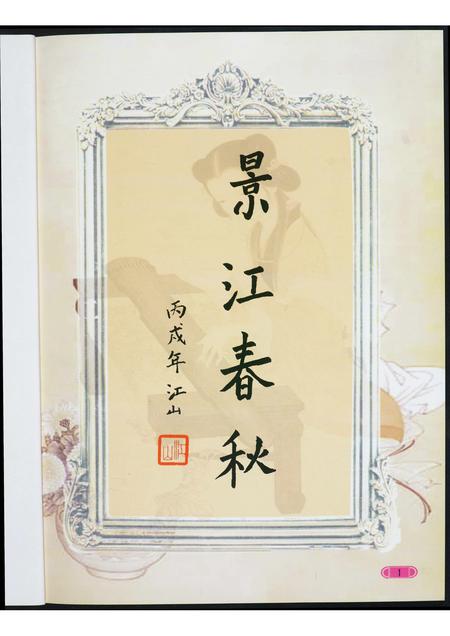 景江春秋
丙戌年 江山
江山
1